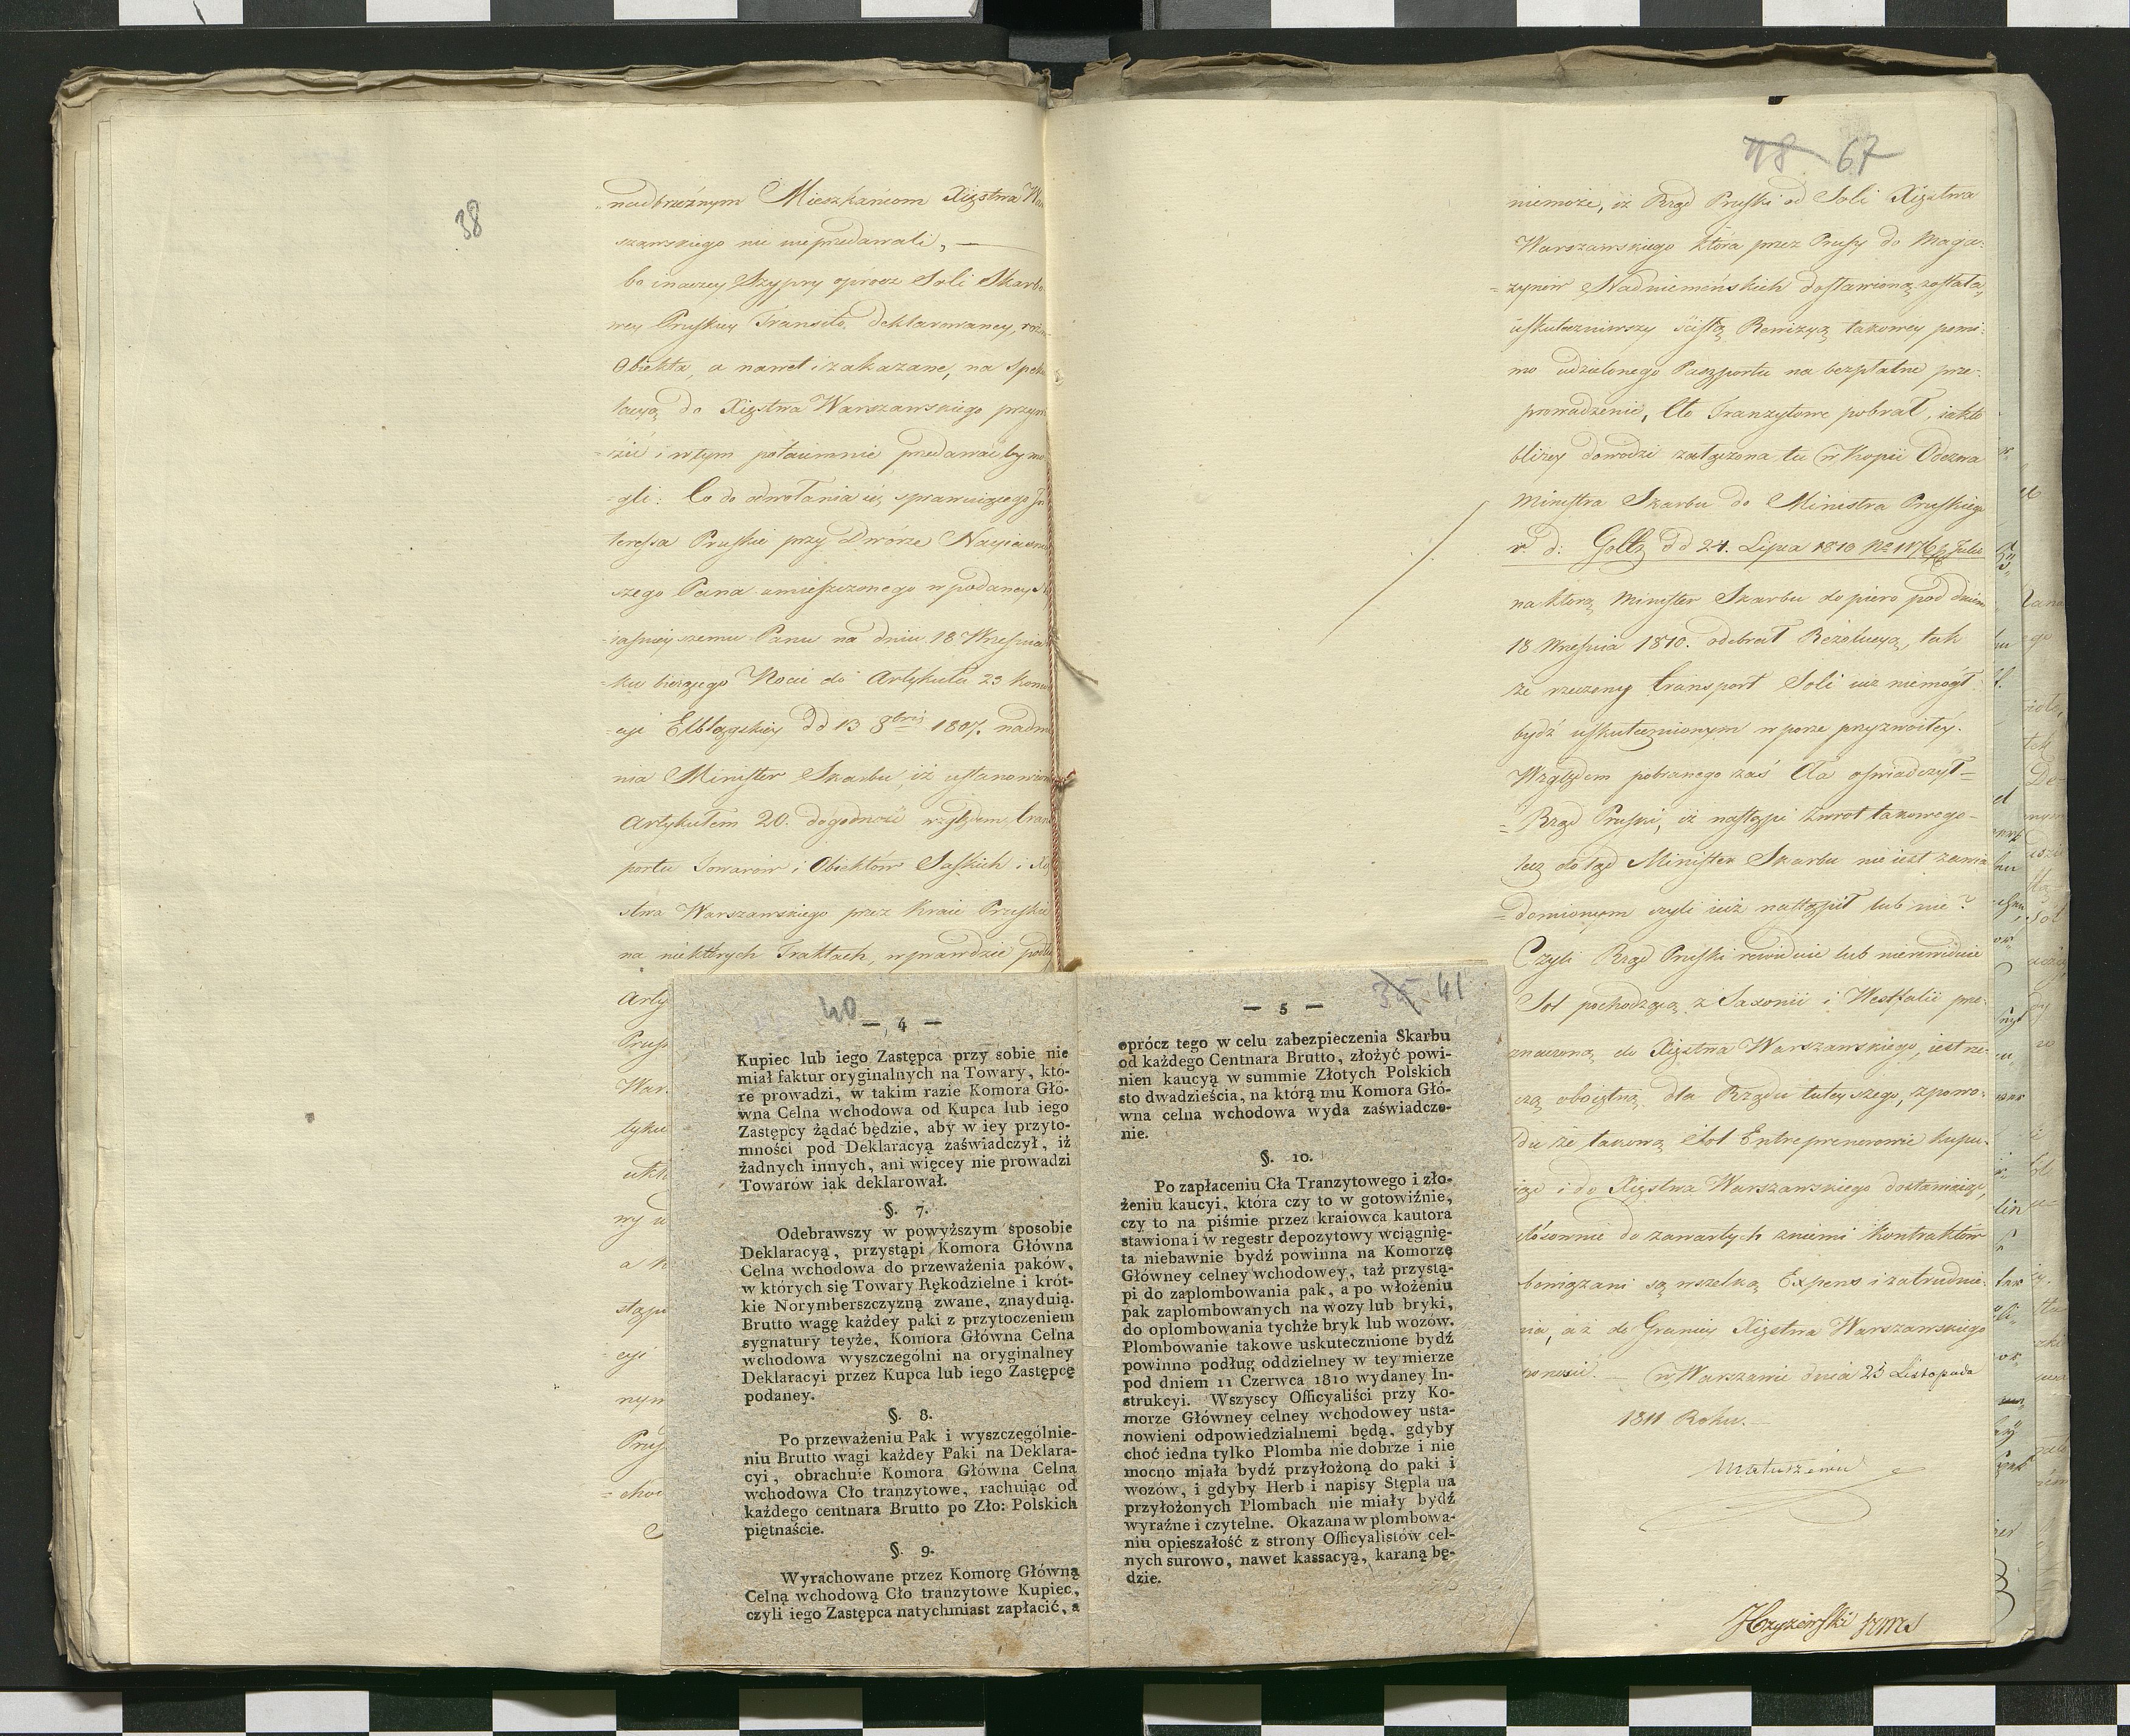 38
nadbrzeżnym Mieszkańcom Xięstwa War
szawskiego nie wyprzedawali, —
bo inaczey Szypry oprocz Soli Skarbo
wey Pruskiey Transito deklarowaney, różne
Obiekta, a nawet i zakazane, na speku
lacyą do Xięstwa Warszawskiego przywo
zić i w tym potaiemnie przedawać by mo
=gli: Co do odwołania się sprawuiącego In
teressa Pruskie przy Dworze Nayiaśniey
szego Pana umieszczonego w podaney
iaśnieyszemu Panu na dniu 18 Września
=ku bieżącego Nocie do Artykułu 23 Konwen
=cyi Elbląskiey dd 13 8bris 1807. nadmie
nia Minister Skarbu, iż ustanowiona
Artykułem 20. dogodność względem trans
portu Towarów i Obiektów Saskich i Xię
stwa Warszawskiego przez Kraie Pruskie
na niektórych Traktach, wprawdzie podług
Arty
Prus
War
tyku
ukł
wy
a K
stąpi
=cyi
nym
Prus
=cho
40
— 4 —
Kupiec lub iego Zastępca przy sobie nie
miał faktur oryginalnych na Towary, któ-
re prowadzi, w takim razie Komora Głó-
wna Celna wchodowa od Kupca lub iego
Zastępcy żądać będzie, aby w iey przyto-
mności pod Deklaracyą zaświadczył, iż
żadnych innych, ani więcey nie prowadzi
Towarów iak deklarował.
§. 7.
Odebrawszy w powyższym sposobie
Deklaracyą, przystąpi Komora Główna
Celna wchodowa do przeważenia paków,
w których się Towary Rękodzielne i krót-
kie Norymberszczyzną zwane, znayduią.
Brutto wagę każdey paki z przytoczeniem
sygnatury teyże, Komora Główna Celna
wchodowa wyszczególni na oryginalney
Deklaracyi przez Kupca lub iego Zastępcę
podaney.
§. 8.
Po przeważeniu Pak i wyszczególnie-
niu Brutto wagi każdey Paki na Deklara-
cyi, obrachuie Komora Główna Celna
wchodowa Cło tranzytowe, rachuiąc od
każdego centnara Brutto po Zło: Polskich
piętnaście.
§. 9.
Wyrachowane przez Komorę Główną
Celną wchodową Cło tranzytowe Kupiec,
czyli iego Zastępca natychmiast zapłacić, a
35 41
— 5 —
oprócz tego w celu zabezpieczenia Skarbu
od każdego Centnara Brutto, złożyć powi-
nien kaucyą w summie Złotych Polskich
sto dwadzieścia, na którą mu Komora Głó-
wna celna wchodowa wyda zaświadcze-
nie.
§. 10.
Po zapłaceniu Cła Tranzytowego i zło-
żeniu kaucyi, która czy to w gotowiźnie,
czy to na piśmie przez kraiowca kautora
stawiona i w regestr depozytowy wciągnię-
ta niebawnie bydź powinna na Komorze
Główney celney wchodowey, taż przystą-
pi do zaplombowania pak, a po włożeniu
pak zaplombowanych na wozy lub bryki,
do oplombowania tychże bryk lub wozów.
Plombowanie takowe uskutecznione bydź
powinno podług oddzielney w tey mierze
pod dniem 11 Czerwca 1810 wydaney In-
strukcyi. Wszyscy Officyaliści przy Ko-
morze Główney celney wchodowey usta-
nowieni odpowiedzialnemi będą, gdyby
choć iedna tylko Plomba nie dobrze i nie
mocno miała bydź przyłożoną do paki i
wozów, i gdyby Herb i napisy Stępla na
przyłożonych Plombach nie miały bydź
wyraźne i czytelne. Okazana w plombowa-
niu opieszałość z strony Officyalistów cel-
nych surowo, nawet kassacyą, karaną bę-
dzie.
48 67
niemoże, iż Rząd Pruski od Soli Xięstwa
Warszawskiego która przez Prusy do Maga-
=zynów Nadniemeńskich dostawioną została,
uskuteczniwszy ścisłą Rewizyą takowey pomi-
mo udzielonego Paszportu na bezpłatne prze-
prowadzenie, Cło Tranzytowe pobrał, iak to
bliżey dowodzi załączona tu w Kopii Odezwa
Ministra Skarbu do Ministra Pruskiego
v d: Goltz dd 24. Lipca 1810
na którą Minister Skarbu dopiero pod dniem
18 Września 1810. odebrał Rezolucyą, tak
że rzeczony transport Soli iuż niemógł
bydź uskutecznionym w porze przyzwoitey.
Względem pobranego zaś Cła oświadczył
=Rząd Pruski, iż nastąpi zwrot takowego
lecz dotąd Minister Skarbu nie iest zawia
=domionym czyli iuż nastąpił lub nie?
Czyli Rząd Pruski rewiduie lub nierewiduie
Sol pochodzącą z Saxonii i Westfalii prze-
znaczoną do Xięstwa Warszawskiego, iest rze-
czą oboiętną dla Rządu tuteyszego, z powo-
du że takową Sol Entreprenerowie kupu-
iąc i do Xięstwa Warszawskiego dostawiaiąc,
stósownie do zawartych z niemi kontraktów
obowiązani są wszelką Expens i zatrudnie-
nia, aż do Granicy Xięstwa Warszawskiego
ponosić. — w Warszawie dnia 23 Listopada
1811 Roku. —
Matuszewic